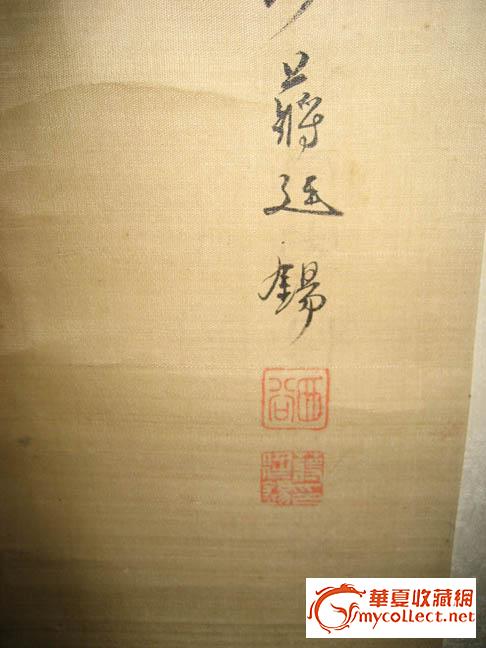 蔣廷錫
西谷
華夏收藏網
mycollect.net